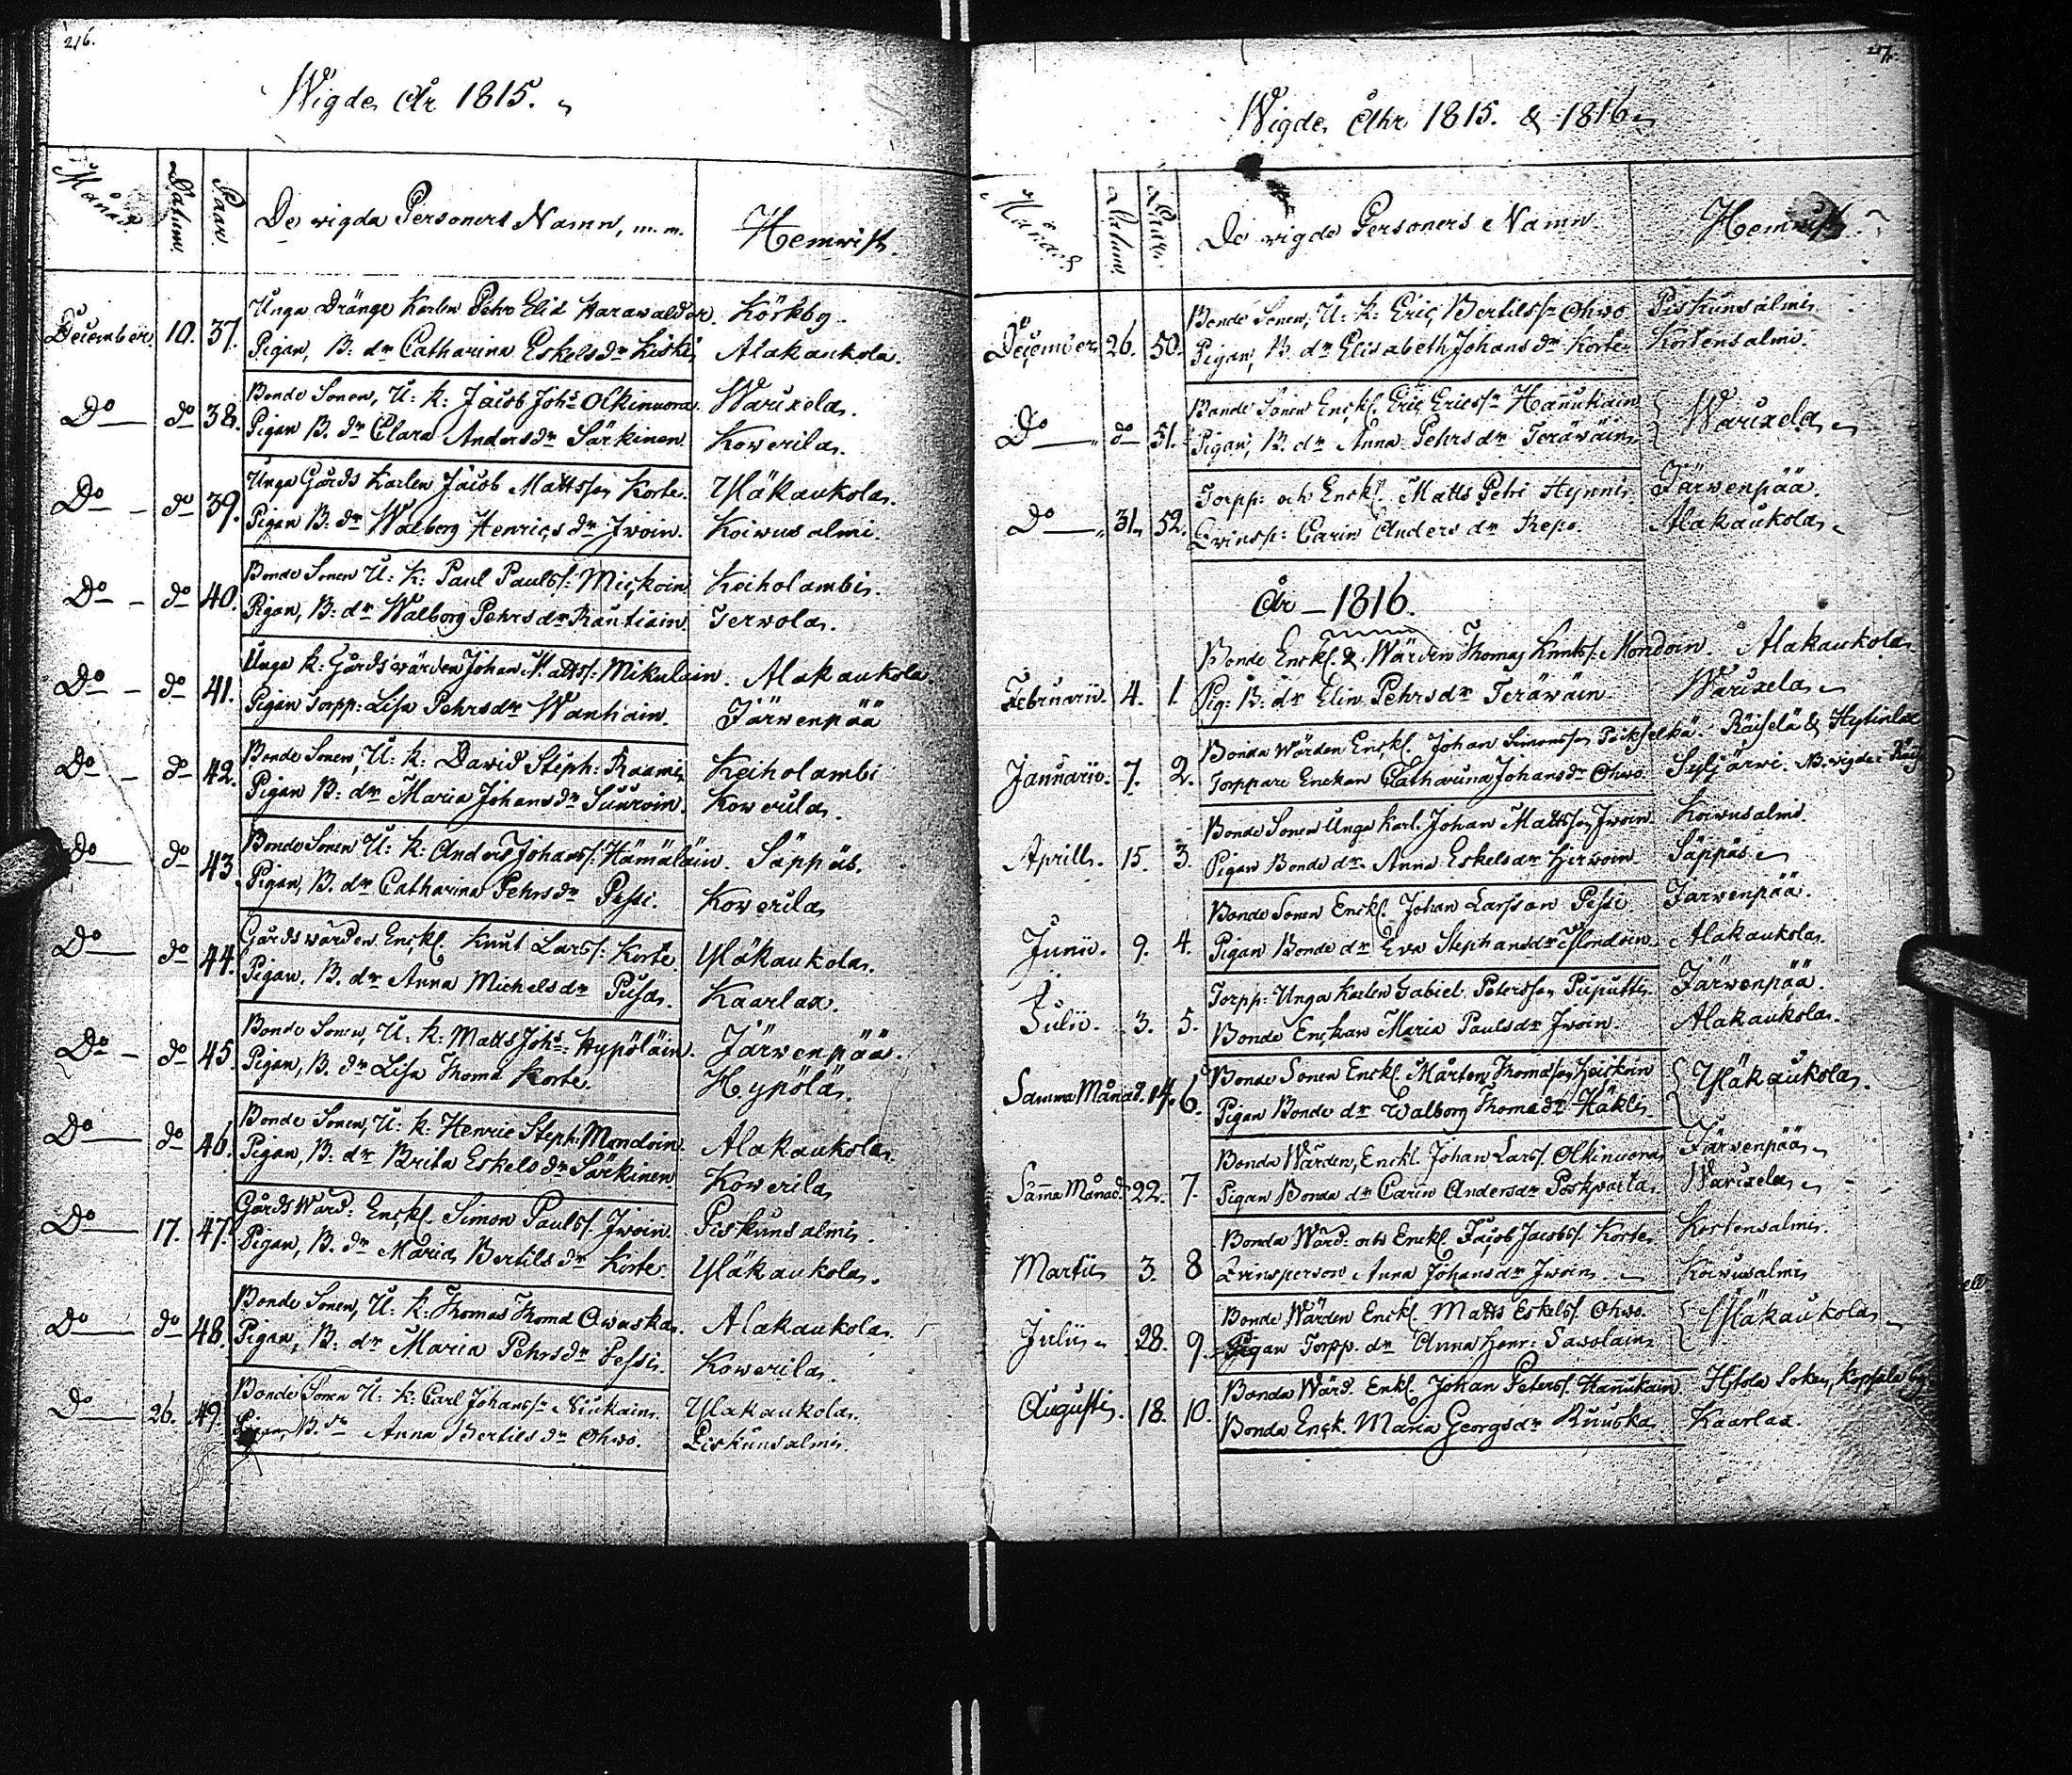 216.
Wigde År 1815.
Månad Datum Paar De vigda Personers Namn, m.m. Hemvist.
December 10. 37. Unga Dränge Karlen Pehr Elis Harawalder. Körkby
Pigan, B: dr Catharina Eskelsdr Liski Alakaukola.
Do do 38. Bonde Sonen, U: k: Jacob Johs Olkinuora Wauxela.
Pigan B. dr Clara Andersdr Särkinen. Kowerila.
Do do 39. Unga Gårds Karlen Jacob Mattsson Korte. Yläkaukola.
Pigan B: dr Walborg Henricsdr Iwoin. Koiwusalmi.
Do do 40. Bonde Sonen U: K: Paul Paulss: Mickoin Keiholambi.
Pigan, B: dr Walborg Pehrsdr Rautiain Terwola.
Do do 41. Unga k: Gårdswärden Johan Matts: Mikulain. Alakaukola
Pigan Torpp: Lisa Pehrsdr Wanhain. Järwenpää
Do do 42. Bonde Sonen, U: k: David Steph: Raami Keiholambi
Pigan B: dr Maria Johansdr Suuroin. Kowerila.
Do do 43. Bonde Sonen U: k: Anders Johanss: Hämäläin. Säppäs.
Pigan, B. dr Catharina Pehrsdr Pessi. Kowerila
Do do 44. Gårdswärden Enckl. Knut Larss: Korte. Yläkaukola.
Pigan. B. dr Anna Michelsdr Pusa. Kaarlax.
Do do 45. Bonde Sonen, U: k: Matts Johs: Hypöläin. Järwenpää.
Pigan, B. dr Lisa Thoma Korte. Hypölä.
Do do 46. Bonde Sonen, U: k: Henric Steph: Mondoin. Alakaukola.
Pigan, B: dr Brita Eskelsdr Särkinen. Kowerila
Do 17. 47. Gårds Wärd: Enckl. Simon Paulss. Iwoin. Piskunsalmi.
Pigan, B. dr Maria Bertilsdr Korte. Yläkaukola.
Do do 48. Bonde Sonen, U: k: Thomas Thoma Owaska. Alakaukola.
Pigan, B: dr Maria Pehrsdr Pessi. Kowerila.
Do 26. 49. Bonde Sonen U: k: Carl Johanss: Niukain. Yläkaukola.
Pigan B. dr Anna Bertilsdr Ohwo. Piskunsalmi
217.
Wigde Åhr 1815. & 1816
Månad Datum Paar De vigde Personers Namn. Hemvist
December 26. 50. Bonde Sonen, U: k: Eric Bertilssn Ohwo Piskunsalmi
Pigan, B. dr Elisabeth Johansdr Korte Kortensalmi.
Do do 51. Bonde Sonen Enckl. Eric Ericssn Hannukain Wauxela
Pigan, B. dr Anna Pehrsdr Teräwäin
Do 31. 52. Torpp: och Enckl. Matts Petri Hynni Järwenpää.
Qvinsp: Carin Andersdr Repo. Alakaukola
År 1816.
Februarii. 4. 1. Bonde Enckl. & Wärden Thomas Knuts. Mondoin. Alakaukola
Pig: B: dr Elin Pehrsdr Teräwäin. Wauxela
Januarii. 7. 2. Bonda Wärden Enckl. Johan Simonsson Päikselkä. Räisälä & Hytinlax
Torppare Enckan Catharina Johansdr Ohwo Syljärwi.
Aprill. 15. 3. Bonde Sonen Unga Karl. Johan Mattsson Iwoin Koiwusalmi
Pigan Bonde dr Anna Eskelsdr Hirwoin Säppäs
Junii. 9. 4. Bonde Sonen Enckl. Johan Larsson Pessi. Järwenpää.
Pigan Bonde dr Eva Stephansdr Mondoin. Alakaukola.
Julii. 3. 5. Torpp: Unga Karlen Gabiel Petersson Puputti. Järwenpää.
Bonde Enckan Maria Paulsdr Iwoin. Alakaukola.
Samma Månad. 14. 6. Bonde Sonen Enckl. Mårten Thomasson Heiskoin Yläkaukola.
Pigan Bonde dr Walborg Thomadr Häkli
Samma Månad 22. 7. Bonda Wärden, Enckl. Johan Larss. Olkinuora Järwenpää
Pigan Bonda dr Carin Andersdr Poskparta Wauxela
Martii 3. 8 Bonda Wärd. och Enckl. Jacob Jacobss. Korte Kortensalmi.
Qvinsperson Anna Johansdr Iwoin Koiwusalmi
Julii 28. 9. Bonde Wärden Enckl. Matts Eskelss. Ohwo. Yläkaukola
Pigan Torpp. dr Anna Henr: Sawolain
Augusti. 18. 10. Bonda Wärd. Enkl. Johan Peterss. Hannukain Hitola Soken, Kopsala by
Bonda Enck. Maria Georgsdr Ruuska Kaarlax.